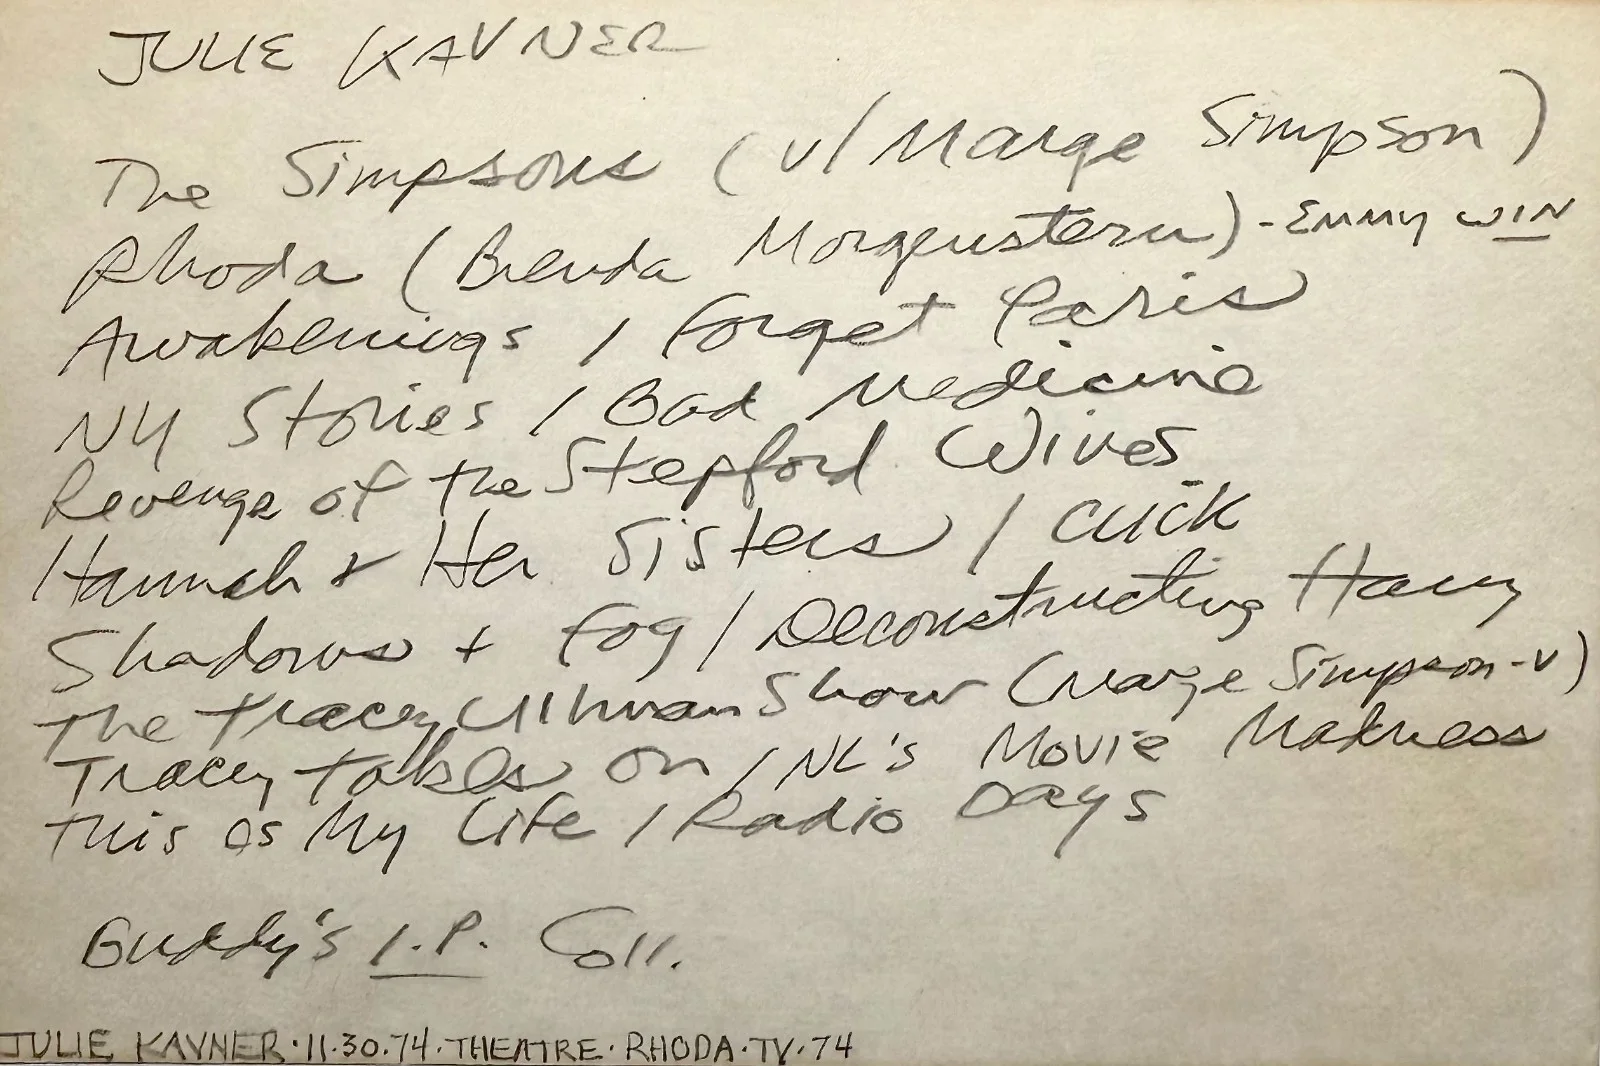 JULIE KAVNER
The Simpsons (v/Marge Simpson)
Rhoda (Brenda Morgenstern) - EMMY WIN
Awakenings / Forget Paris
NY Stories / Bad Medicine
Revenge of the Stepford Wives
Hannah + Her Sisters / CLICK
Shadows + Fog / Deconstructing Harry
The Tracey Ullman Show (Marge Simpson-v)
Tracey Takes On / NL's Movie Madness
This is My Life / Radio Days
Buddy's I.P. Coll.
JULIE KAVNER·11·30·74·THEATRE·RHODA·TV·74